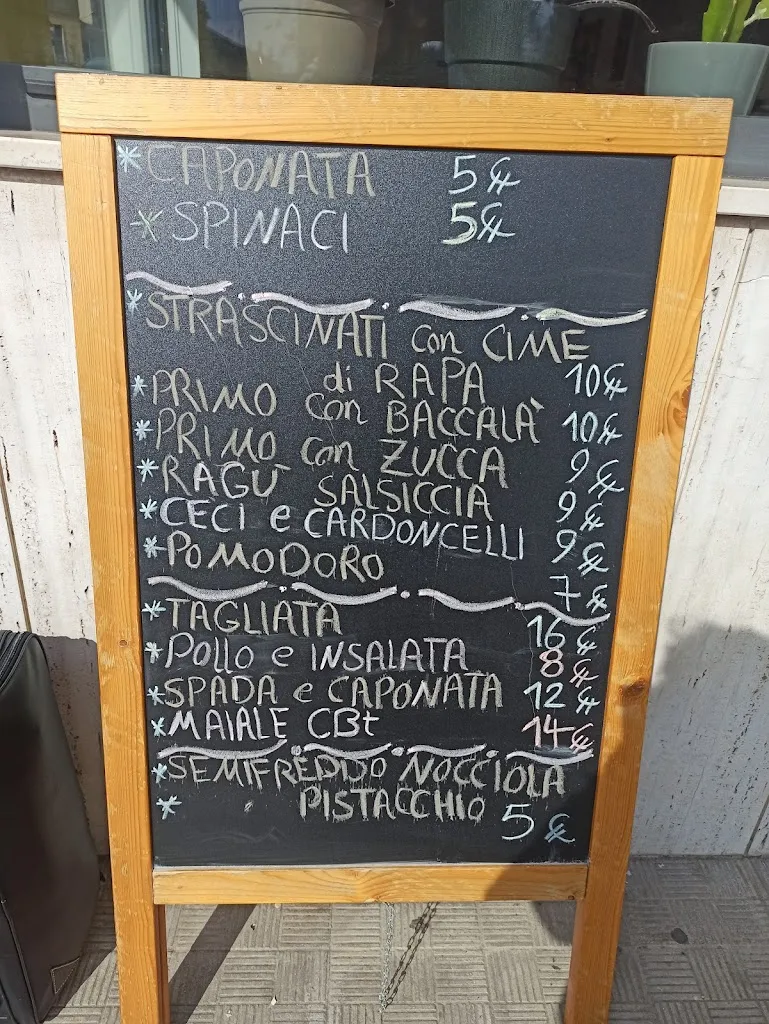 * CAPONATA 5€
* SPINACI 5€
* STRASCINATI con CIME
di RAPA 10€
* PRIMO con BACCALÀ 10€
* PRIMO con ZUCCA 9€
* RAGÙ SALSICCIA 9€
* CECI e CARDONCELLI 9€
* POMODORO 7€
* TAGLIATA 16€
* POLLO e INSALATA 8€
* SPADA e CAPONATA 12€
* MAIALE CBt 14€
* SEMIFREDDO NOCCIOLA
* PISTACCHIO 5€